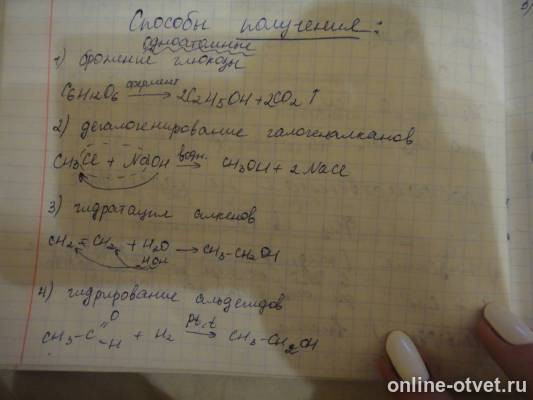 Способы получения:
одноатомные
1) брожение глюкозы
C6H12O6 фермент → 2C2H5OH + 2CO2 ↑
2) дегалогенирование галогеналканов
CH3Cl + NaOH водн. → CH3OH + 2 NaCl
3) гидратация алкенов
CH2 = CH2 + H2O → CH3-CH2OH
HOH
4) гидрирование альдегидов
O
CH3-C-H + H2 Pt, t → CH3-CH2OH
online-otvet.ru